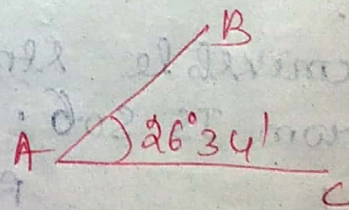 B
A 26°34'
C